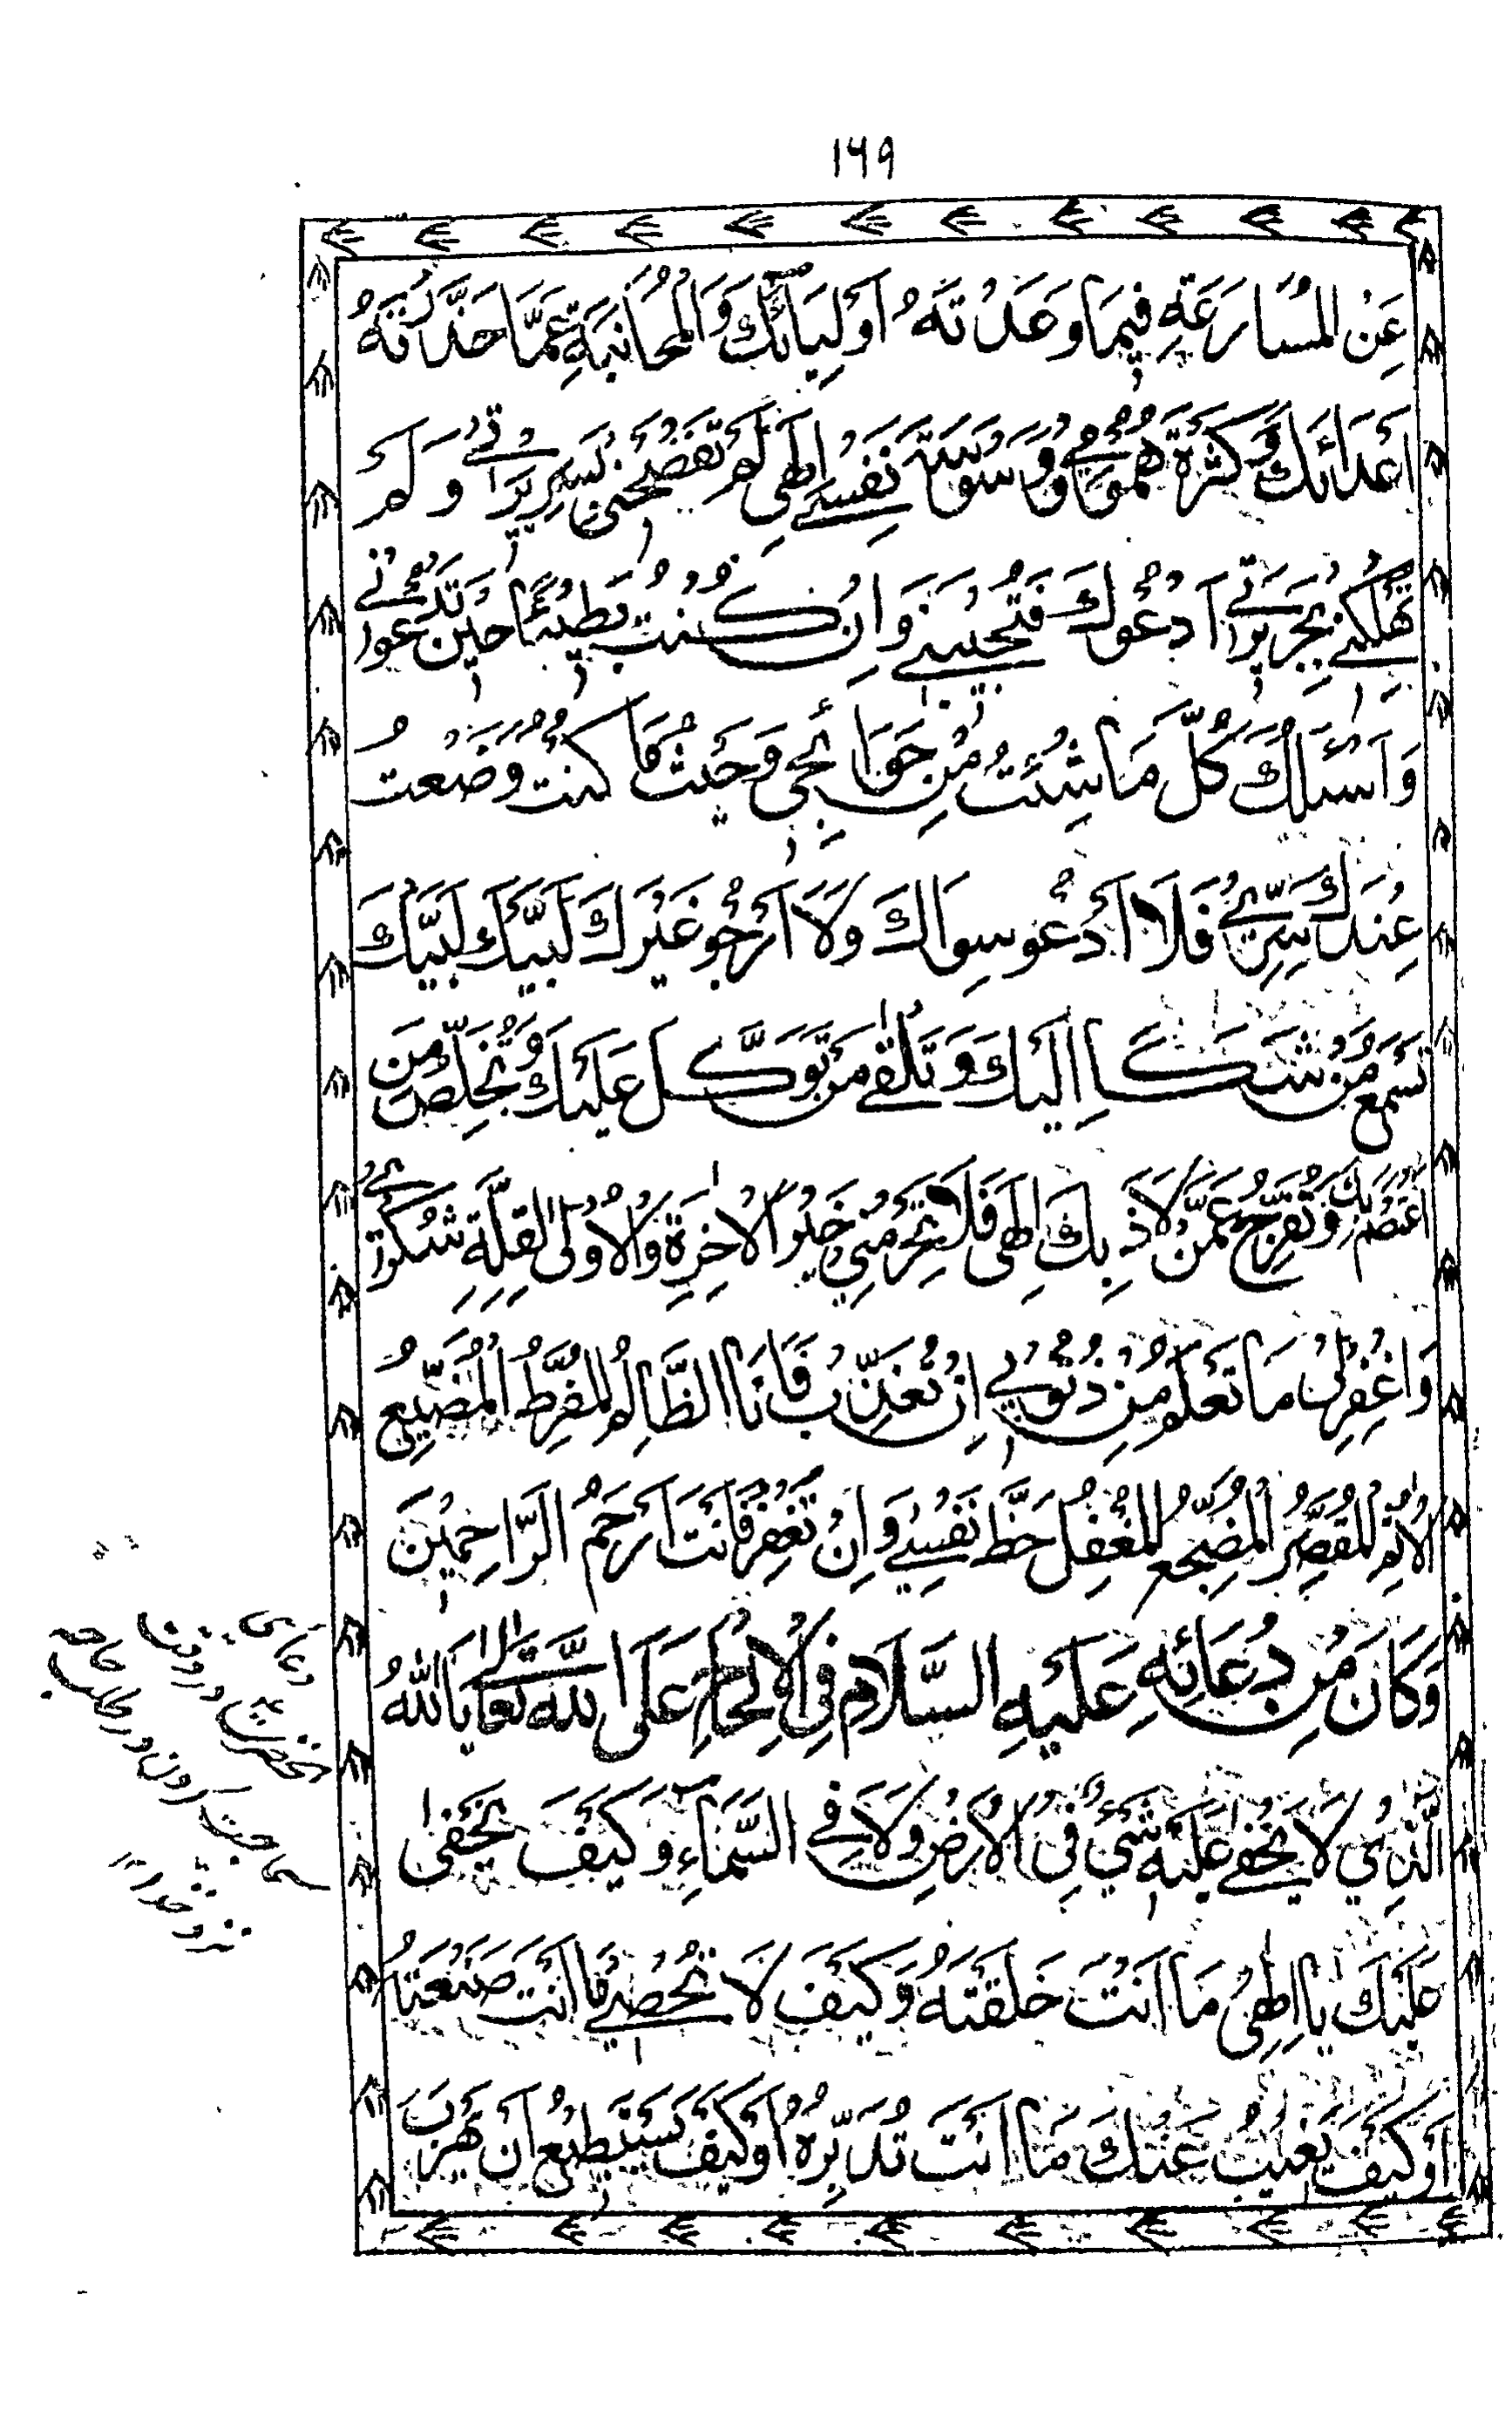 ۱۴۹
عَنِ الْمُسَارَعَةِ فِيمَا وَعَدْتَهُ أَوْلِيَائَكَ وَالْمُجَانَبَةِ عَمَّا حَذَّرْتَهُ
أَعْدَائَكَ وَكَثْرَةَ هُمُومِي وَوَسْوَسَةَ نَفْسِي إِلٰهِي لَمْ تَفْضَحْنِي بِسَرِيرَتِي وَلَمْ
تُهْلِكْنِي بِجَرِيرَتِي أَدْعُوكَ فَتُجِيبُنِي وَإِنْ كُنْتُ بَطِيئًا حِينَ تَدْعُونِي
وَأَسْئَلُكَ كُلَّ مَا شِئْتُ مِنْ حَوَائِجِي وَحَيْثُ مَا كُنْتُ وَضَعْتُ
عِنْدَكَ سِرِّي فَلَا أَدْعُو سِوَاكَ وَلَا أَرْجُو غَيْرَكَ لَبَّيْكَ لَبَّيْكَ
تَسْمَعُ مَنْ شَكَا إِلَيْكَ وَتَلْقٰى مَنْ تَوَكَّلَ عَلَيْكَ وَتُخَلِّصُ مَنِ
اعْتَصَمَ بِكَ وَتُفَرِّجُ عَمَّنْ لَاذَ بِكَ إِلٰهِي فَلَا تَحْرِمْنِي خَيْرَ الْآخِرَةِ وَالْأُولٰى لِقِلَّةِ شُكْرِي
وَاغْفِرْ لِي مَا تَعْلَمُ مِنْ ذُنُوبِي إِنْ تُعَذِّبْ فَأَنَا الظَّالِمُ الْمُفَرِّطُ الْمُضَيِّعُ
الْآثِمُ الْمُقَصِّرُ الْمُضَجِّعُ الْمُغْفِلُ حَظَّ نَفْسِي وَإِنْ تَغْفِرْ فَأَنْتَ أَرْحَمُ الرَّاحِمِينَ
وَكَانَ مِنْ دُعَائِهِ عَلَيْهِ السَّلَامُ فِي الْإِلْحَاحِ عَلَى اللّٰهِ تَعَالٰى يَا اَللّٰهُ
الَّذِي لَا يَخْفٰى عَلَيْهِ شَيْءٌ فِي الْأَرْضِ وَلَا فِي السَّمَاءِ وَكَيْفَ يَخْفٰى
عَلَيْكَ يَا إِلٰهِي مَا أَنْتَ خَلَقْتَهُ وَكَيْفَ لَا تُحْصِي مَا أَنْتَ صَنَعْتَهُ
أَوْ كَيْفَ يَغِيبُ عَنْكَ مَا أَنْتَ تُدَبِّرُهُ أَوْ كَيْفَ يَسْتَطِيعُ أَنْ يَهْرُبَ
دعای
نزد خدا